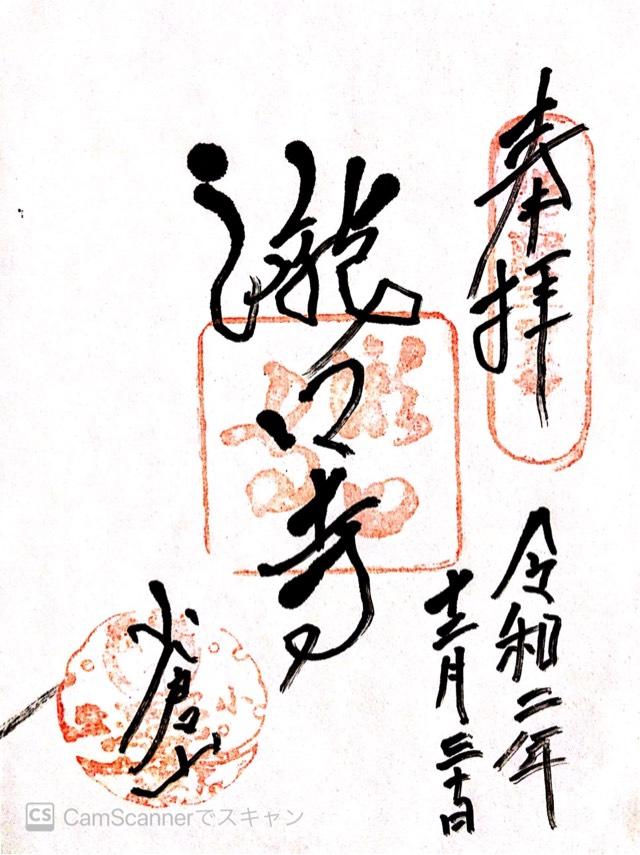 奉拝
令和二年
十二月三十日
滝口寺
小倉山
CamScannerでスキャン